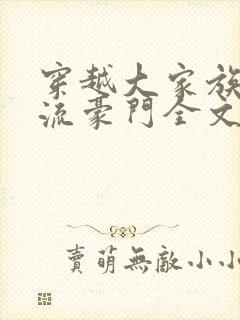 穿越大家族
流豪門全文
賣萌無敵小小